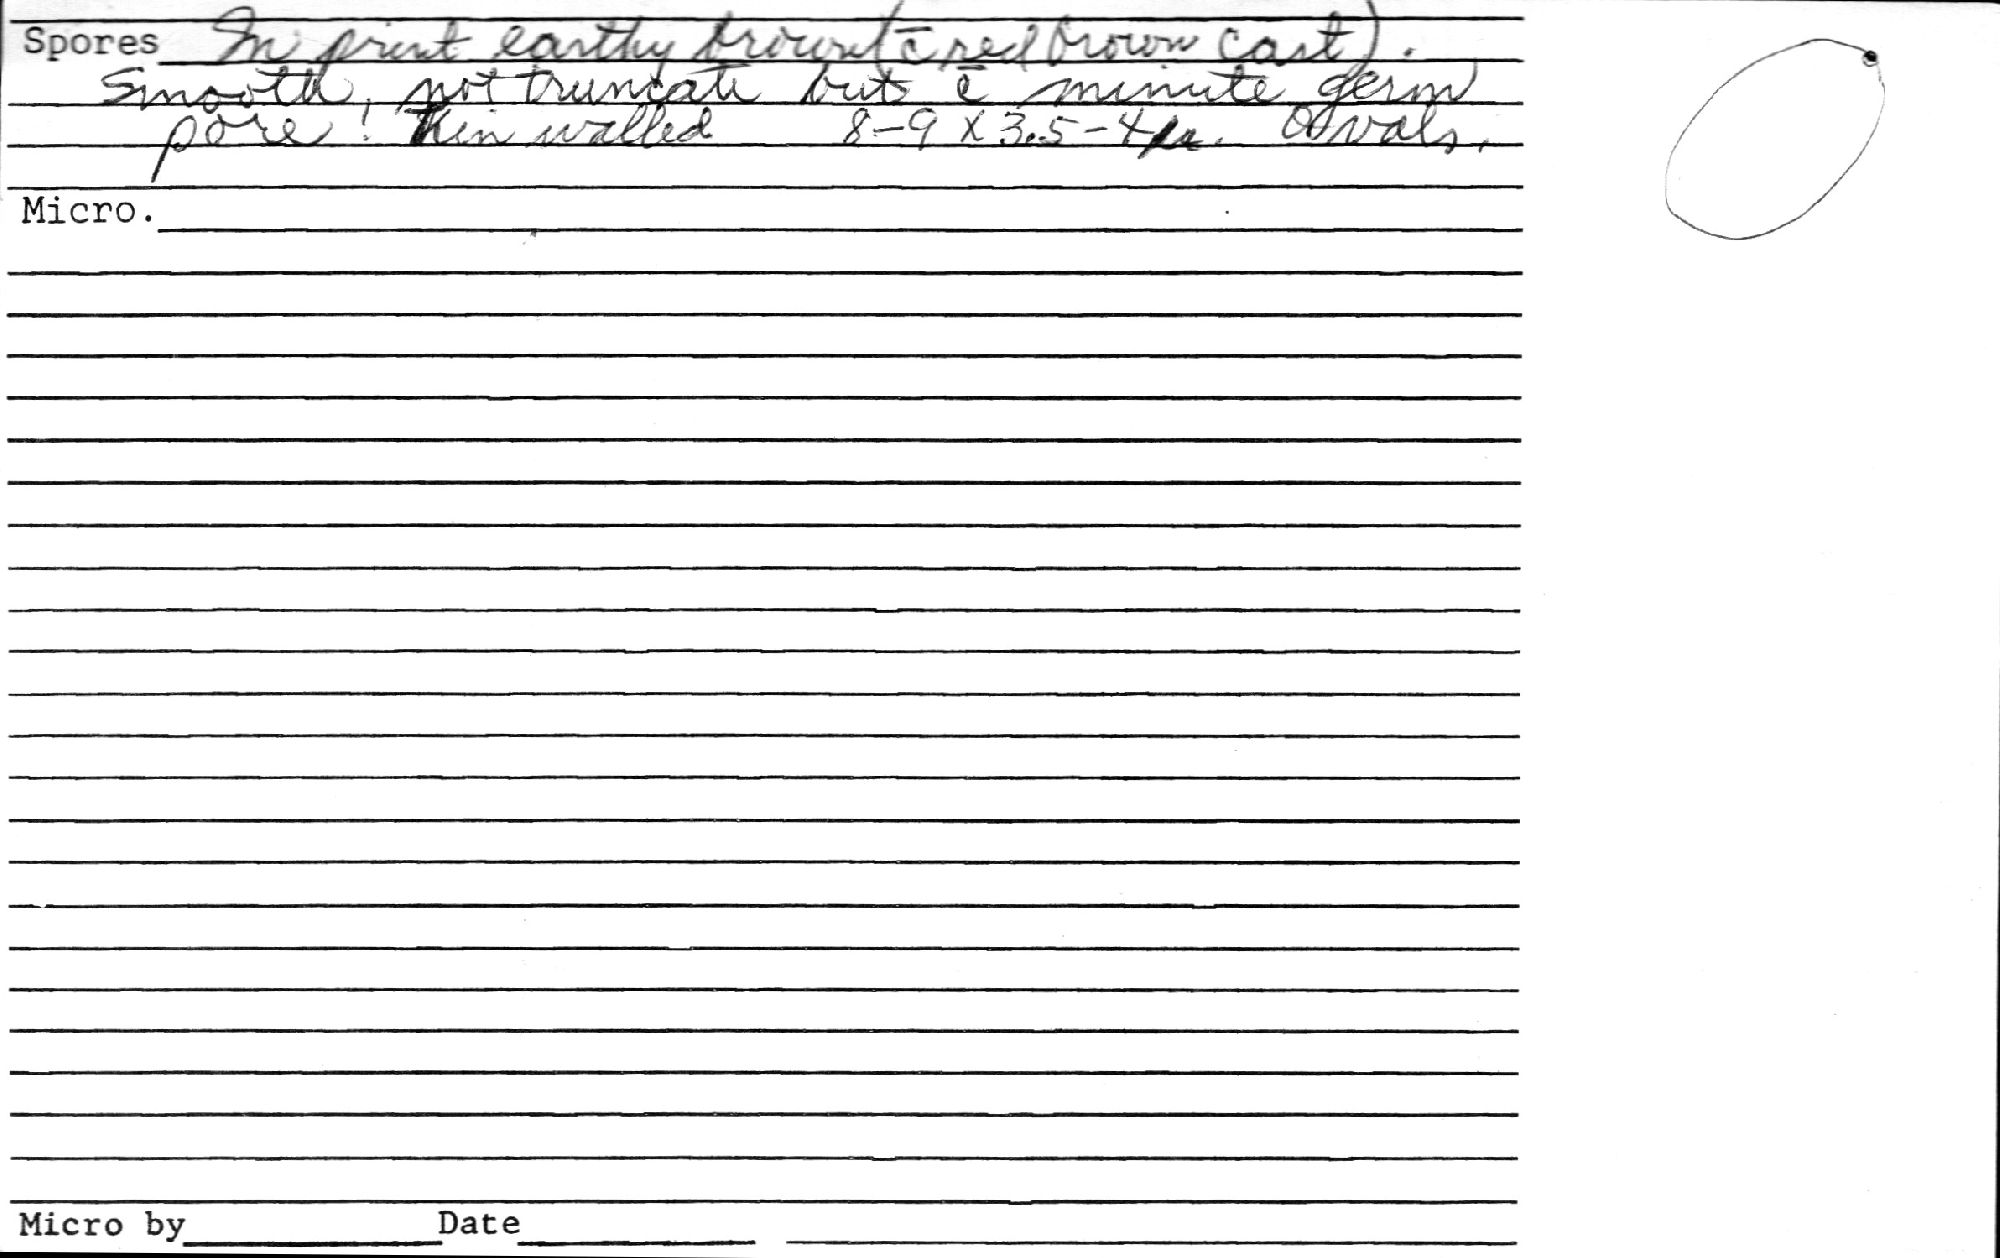 Spores In print earthy brown (c̄ red brown cast).
Smooth, not truncate but c̄ minute germ
pore! Thin walled 8-9 x 3.5-4µ. Ovals.
Micro.
Micro by Date